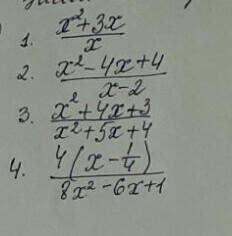 1. (x²+3x)/x
2. (x²-4x+4)/(x-2)
3. (x²+4x+3)/(x²+5x+4)
4. 4(x-1/4)/(8x²-6x+1)